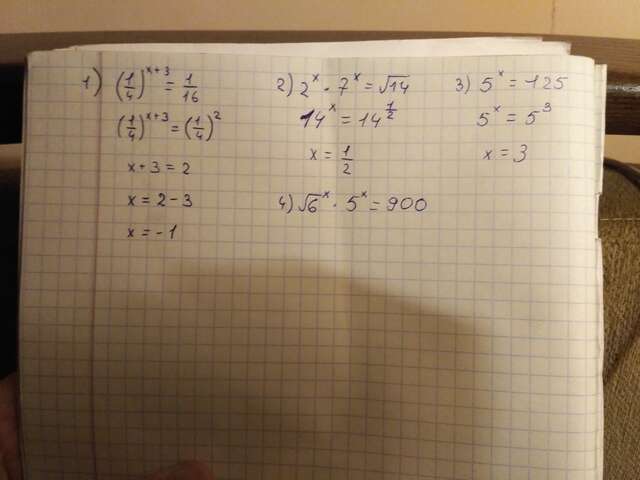 1) (1/4)^(x+3) = 1/16
(1/4)^(x+3) = (1/4)^2
x + 3 = 2
x = 2 - 3
x = -1
2) 2^x · 7^x = √14
14^x = 14^(1/2)
x = 1/2
3) 5^x = 125
5^x = 5^3
x = 3
4) √6^x · 5^x = 900